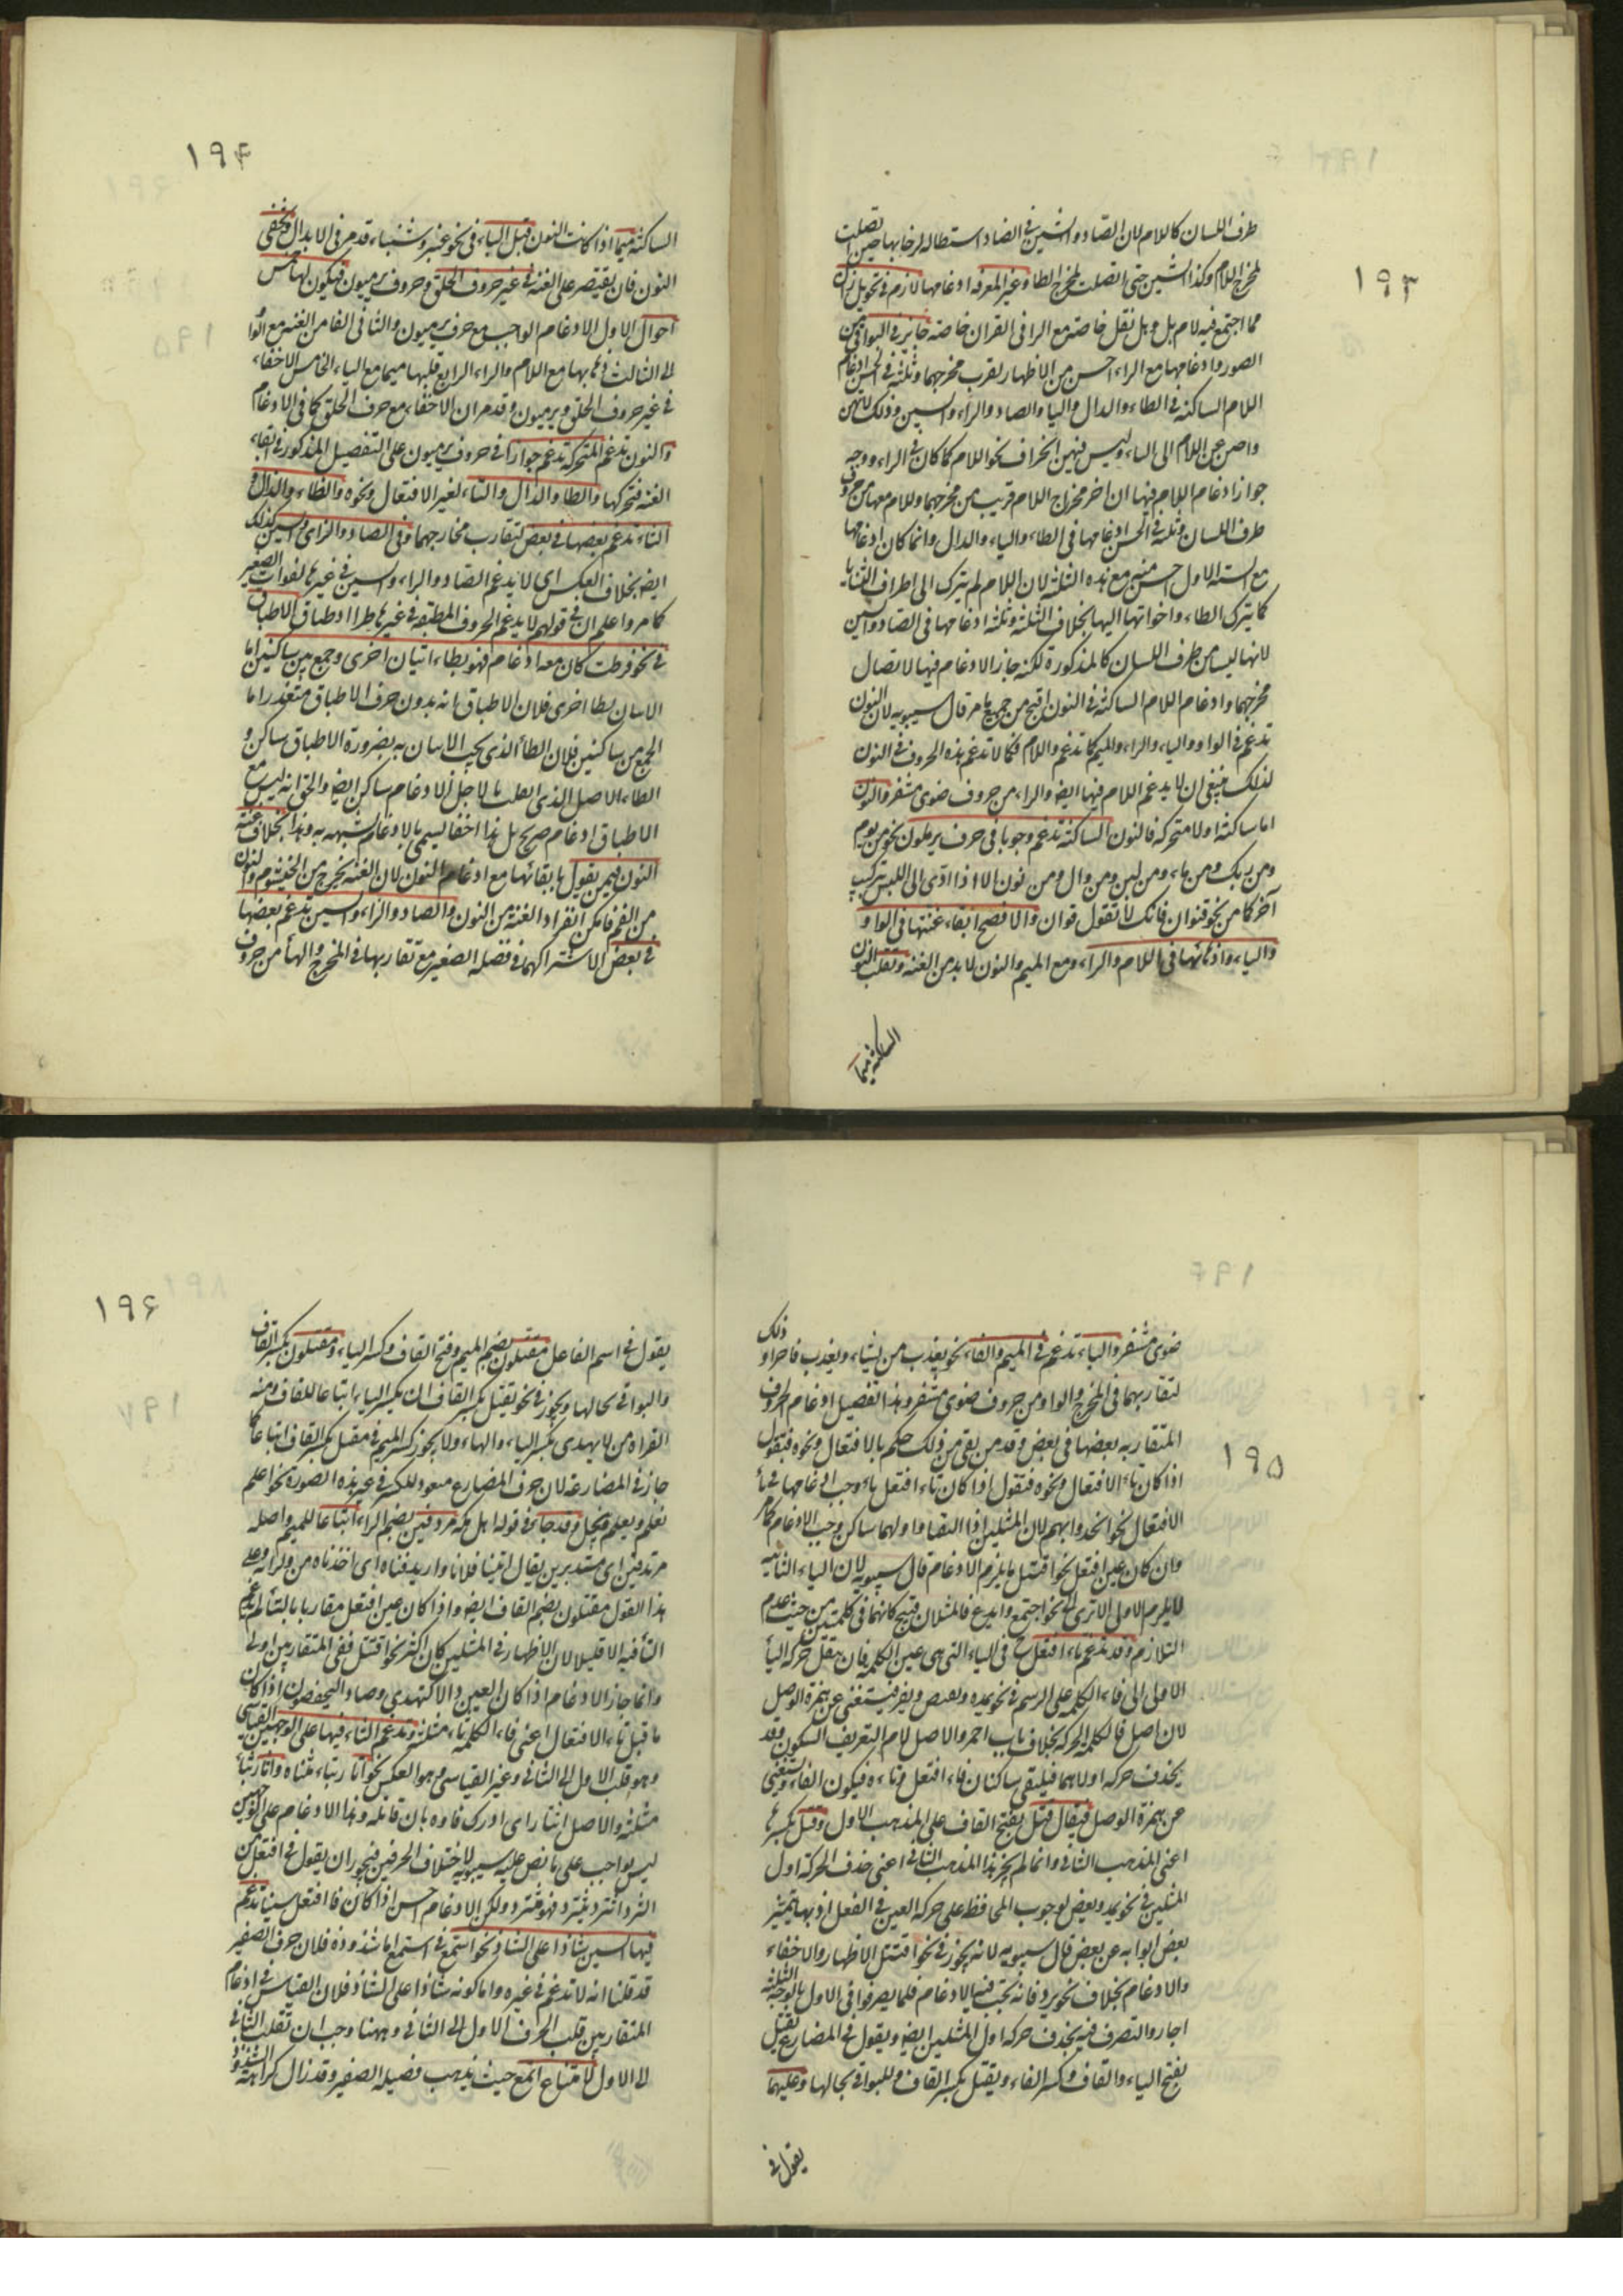 ١٩٣
طرف اللسان كاللام لان الضاد والشين في الضاد استطاله لرخاوتها حين تصلت
لمخرج اللام وكذا الشين حتى اتصلت لمخرج الطا وغير المعرفه ادغامها لازم في نحو بل ران
مما اجتمع فيه لام بل وهل نقل خاصه مع الرا في القران خاصه جايز في البواقي من
الصور وادغامها مع الراء احسن من الاظهار لقرب مخرجهما وثلثه في الحسن ادغام
اللام الساكنه في الطاء والدال والتا والصاد والزاء والسين وذلك لانهن
عن اللام الى الثاء وليس فيهن انحراف نحو اللام كما كان في الراء ووجه
جواز ادغام اللام فيها ان اخر مخرج اللام قريب من مخرجهما واللام معها من حروف
طرف اللسان وثلثه في الحسن ادغامها في الظاء والثاء والذال وانما كان ادغامها
مع السته الاول احسن منه مع هذه الثلثه لان اللام لم يترك الى اطراف الثنايا
كما يترك الطاء واخواتها اليها بخلاف الثلثه وثلثه ادغامها في الضاد والشين
لانها ليسا من طرف اللسان كالمذكورة لكنه جاز الادغام فيها لاتصال
مخرجهما وادغام اللام الساكنه في النون اقبح من جميع ما مر قال سيبويه لان النون
تدغم في الواو والياء والراء والميم كما تدغم واللام فكما لا تدغم هذه الحروف في النون
لذلك ينبغي ان لا يدغم اللام فيها ايضه والراء من حروف ضوى مشفر والنون
اما ساكنه اولا متحركه فالنون الساكنه تدغم وجوبا في حرف يرملون نحو من يوم
ومن ربك ومن ماء ومن لبن ومن وال ومن نون الا اذا ادى الى اللبس تركيب
آخر كما من نحو قنوان فانك لا تقول قوان والافصح ابقاء غنتها في الواو
والياء واذهابها في اللام والراء ومع الميم والنون لا بد من الغنه وتقلب النون
الساكنه ميما
١٩۴
الساكنه ميما اذا كانت النون قبل الباء في نحو عنبر وشنباء قد مر في الابدال وتخفى
النون فان يقتصر على الغنه في غير حروف الحلق وحروف يرميون فيكون لها خمس
احوال الاول الادغام الواجب مع حرف يرميون والثاني الفا من الغنه مع الوا
الى الثالث ذهابها مع اللام والراء الرابع قلبها ميما مع الباء الخامس الاخفاء
في غير حروف الحلق ويرميون وقد مر ان الاخفاء مع حرف الحلق كما في الادغام
والنون تدغم المتحركه تدغم جوازا في حروف يرميون على التفصيل المذكور في ابقاء
الغنه فتحركها والطا والدال والتاء لغير الافتعال ونحوه والظاء والذال و
الثاء تدغم بعضها في بعض لتقارب مخارجهما وفي الصاد والزاى والسين كذلك
ايضه بخلاف العكس اى لا يدغم الصاد والزاء والسين في غيرها لفوات الصغير
كما مر واعلم ان في قولهم لا يدغم الحروف المطبقه في غيرها طرا اد طباق الاطباق
في نحو فرطت كان معه ادغام فهو بطاء اتيان اخرى وجمع بين ساكنين اما
الاتيان بطا اخرى فلان الاطباق بانه بدون حرف الاطباق متعذر اما
الجمع بين ساكنين فلان الطاء الذى يجب الاتيان به بضرورة الاطباق ساكن و
الطاء الاصل الذى ابطلت تا لاجل الادغام ساكن ايضه والحق انه ليس مع
الاطباق ادغام صريح بل هذا اخفا ليسمى بالادغام لشبهه به وهذا بخلاف غنه
النون فيمن يقول بابقائها مع ادغام النون لان الغنه يخرج من الخيشوم والنون
من الفم فامكن انفراد الغنه من النون والصاد والزاء والسين تدغم بعضها
في بعض لاشتراكهما في فضله الصغير مع تقاربها في المخرج والهاء من حروف
١٩۵
ضوى مشفر والباء تدغم في الميم والفاء نحو يعذب من يشاء ويعذب فاجرا وذلك
لتقاربهما في المخرج والواو من حروف ضوى مشفر وهذا تفصيل ادغام الحروف
المتقاربه بعضها في بعض وقد من بقى من ذلك حكم تا الافتعال ونحوه فتقول
اذا كان تاء الافتعال ونحوه فنقول اذا كان تاء افتعل تاء وجب ادغامها في تاء
الافتعال نحو اتخد وابهم لان المثلين اذا التقتا واولهما ساكن وجب الادغام كما مر
وان كان عين افتعل نحو اقتتل ما يلزم الادغام قال سيبويه لان التاء الثانيه
لا يلزم الاول الا ترى الى نحو اجتمع وابدع فالمثلان قبح كانهما في كلمتين من حيث عدم
التلازم وقد تدغم تاء افتعل ح في التاء التى هى عين الكلمه فان ينقل حركه التاء
الاولى الى فاء الكلمه على الرسم في نحو يمده ويعض ويفر فيستغنى عن همزة الوصل
لان اصل فا الكلمه الحركه بخلاف باب احمر والاصل لام التعريف السكون وقد
يحذف حركه اولاهما فيلتقى ساكنان فاء افتعل وتاءه فيكون الفاء ويستغنى
عن همزة الوصل فيقال قتل بفتح القاف على المذهب الاول وقتل بكسرها
اعنى المذهب الثانى وانما لم يجز هذا المذهب الثانى اعنى حذف الحركه اول
المثلين في نحو يمد ويعض لوجوب المحافظ على حركه العين في الفعل اذ بها يتميز
بعض ابوابه عن بعض قال سيبويه لانه يجوز في نحو اقتتل الاظهار والاخفاء
والادغام بخلاف نحو يرد فانه يجب فيها الادغام فلما يصرفوا في الاول بالوجه الثلثه
اجازوا التصرف فيه بحذف حركه اول المثلين ايضه ويقول في المضارع يقتل
بفتح الياء والقاف وكسر الفاء ويقتل بكسر القاف وللبواقى بحالها وعليهما
يقول في
١٩۶
يقول في اسم الفاعل مقتلون بضم الميم وفتح القاف وكسر التاء ومقتلون بكسر القاف
والبواقى بحالها ويجوز في نحو يقتل بكسر القاف ان بكسر الياء اتباعا للقاف ومنه
القراه من لا يهدى بكسر الياء والهاء ولا يجوز كسر الميم في مقتل بكسر القاف اتباعا كما
جاز في المضارعه لان حرف المضارع متعود للكسر في غير هذه الصورة نحو اعلم
نعلم ويعلم وقد جاء في قوله اهل مكه مردفين بضم الراء اتباعا للميم واصله
مرتدفين اى مستدبرين يقال اتينا فلانا وارتدفناه اى اخذناه من ورائه وعلى
هذا القول مقتلون بضم القاف ايضه واذا كان عين افتعل مقاربا بالتاء لم تدغم
التا فيه الا قليلا لان الاظهار في المثلين كان اكثر نحو اقتتل ففي المتقاربين اولى
وانما جاز الادغام اذا كان العين دالا كتهدى وصاد التخصمون اذا كان
ما قبل تاء الافتعال اعنى فاء الكلمه ثاء مثلثه وتدغم الثاء فيها على الوجهين القياسى
وهو قلب الاول الى الثانى وغير القياسى وهو العكس نحو اتا ر بتاء مثناه واثا ر بثاء
مثلثه والاصل اثتار اى ادرك ثاره بان قاتله وهذا الادغام على الوجهين
ليس بواجب على ما نص عليه سيبويه لاختلاف الحرفين فيجوز ان يقول في افتعل من
الثرد اثترد يثترد فهو مثترد ولكن الادغام احسن اذا كان فا افتعل سينا تدغم
فيها السين شاذا على الشاذ نحو اسمع في استمع اما شذوذه فلان حرف الصفير
قد قلنا انه لا تدغم في غيره واما كونه شاذا على الشاذ فلان القياس في ادغام
المتقاربين قلب الحرف الاول الى الثانى وههنا وجب ان تقلب الثانى
الى الاول لامتناع اتمع حيث يذهب فضيله الصفير وقد زال كراهة الشذوذ